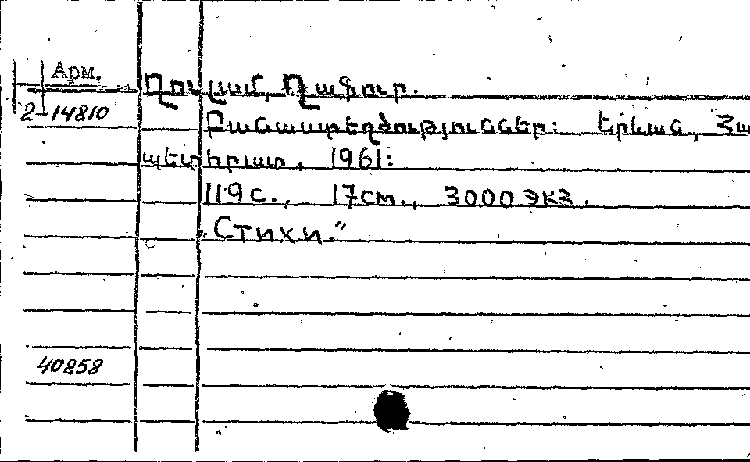 Арм.
Ղուլամ, Ղաֆուր.
2-14810
Բանաստեղծություններ: Երևան, Հա
պետհրատ, 1961:
119 с., 17см., 3000 экз.
„Стихи."
40858